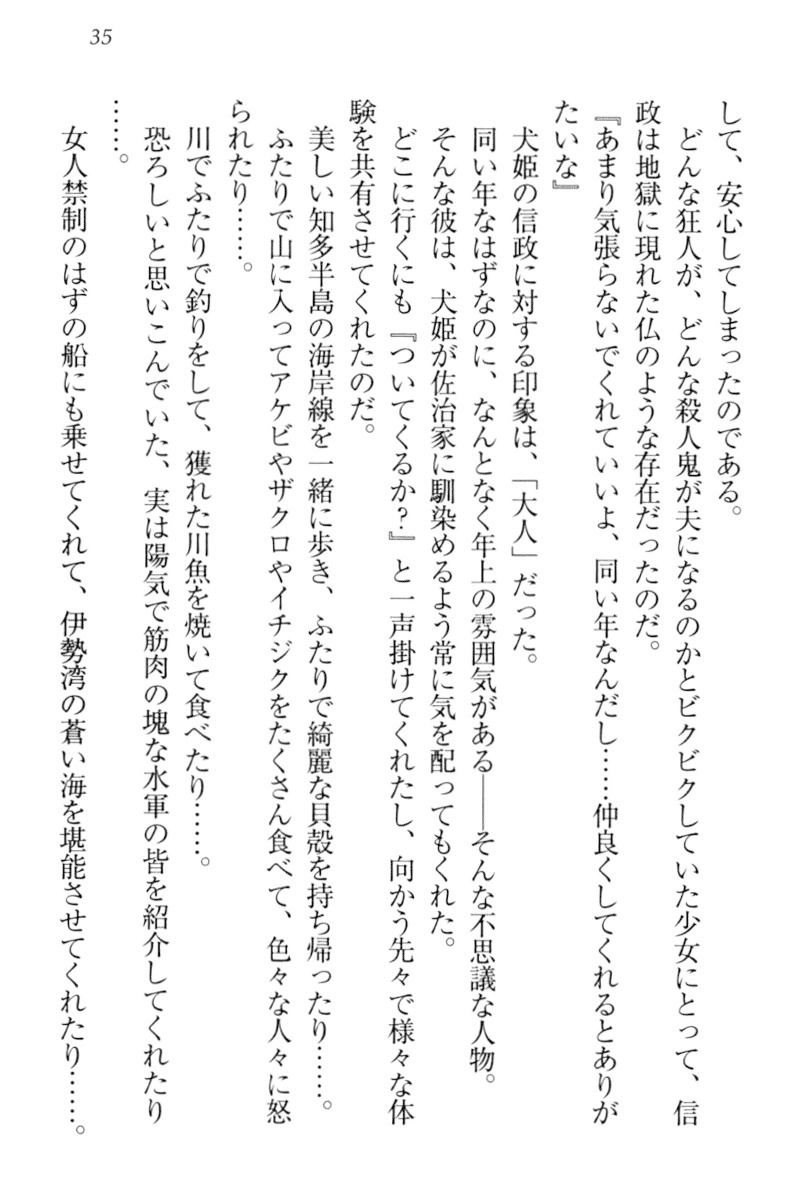 35
して、安心してしまったのである。
どんな狂人が、どんな殺人鬼が夫になるのかとビクビクしていた少女にとって、信
政は地獄に現れた仏のような存在だったのだ。
『あまり気張らないでくれていいよ、同い年なんだし……仲良くしてくれるとありが
たいな』
犬姫の信政に対する印象は、「大人」だった。
同い年なはずなのに、なんとなく年上の雰囲気がある――そんな不思議な人物。
そんな彼は、犬姫が佐治家に馴染めるよう常に気を配ってもくれた。
どこに行くにも『ついてくるか？』と一声掛けてくれたし、向かう先々で様々な体
験を共有させてくれたのだ。
美しい知多半島の海岸線を一緒に歩き、ふたりで綺麗な貝殻を持ち帰ったり……。
ふたりで山に入ってアケビやザクロやイチジクをたくさん食べて、色々な人々に怒
られたり……。
川でふたりで釣りをして、獲れた川魚を焼いて食べたり……。
恐ろしいと思いこんでいた、実は陽気で筋肉の塊な水軍の皆を紹介してくれたり
……。
女人禁制のはずの船にも乗せてくれて、伊勢湾の蒼い海を堪能させてくれたり……。